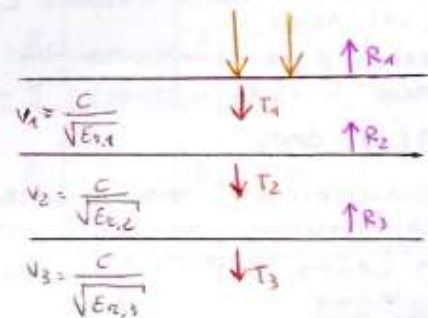 R1
v1 = C / √Er,1
T1
R2
v2 = C / √Er,2
T2
R3
v3 = C / √Er,3
T3